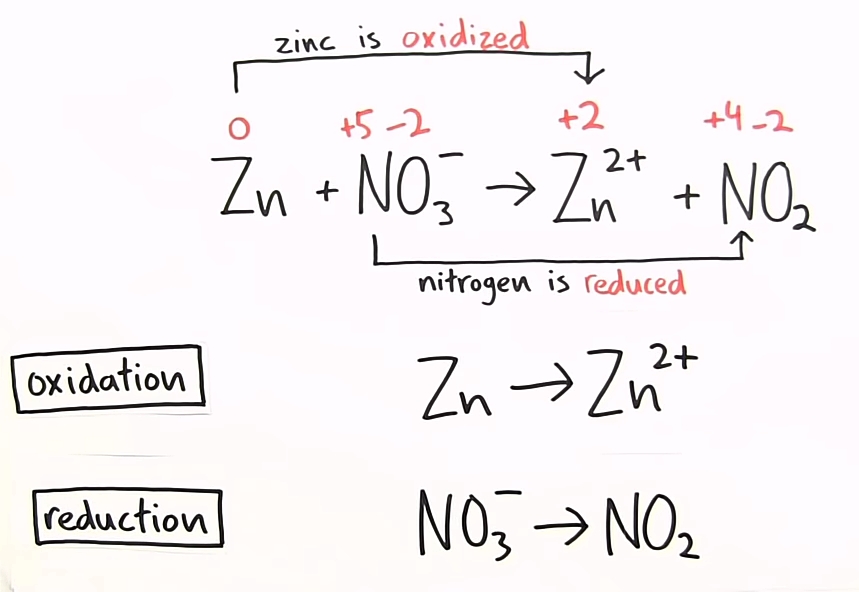 zinc is oxidized
0 +5 -2 +2 +4 -2
Zn + NO₃⁻ → Zn²⁺ + NO₂
nitrogen is reduced
oxidation Zn → Zn²⁺
reduction NO₃⁻ → NO₂